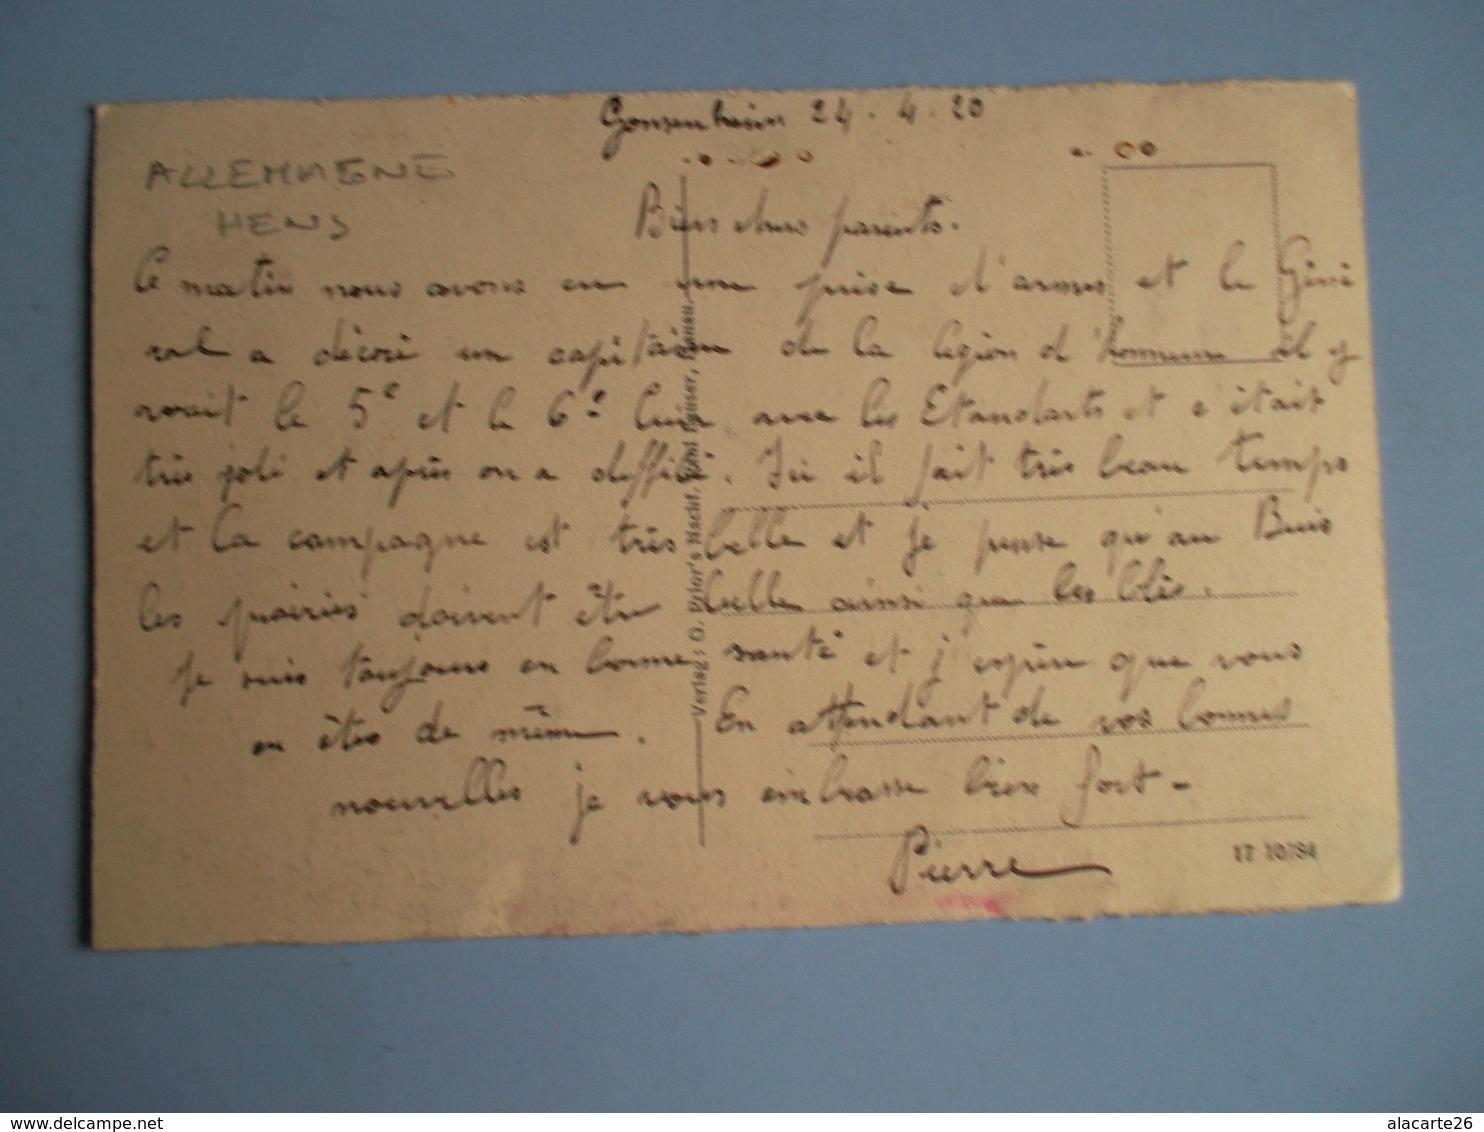 Gonsenheim 24.4.20
ALLEMAGNE
HENS
Biens chers parents.
Ce matin nous avons eu une prise d'armes et le Géné
ral a décoré un capitaine de la legion d'honneur il y
avait le 5e et le 6e Cuir avec les Etandarts et c'était
très joli et après on a deffilé. Ici il fait très beau temps
et la campagne est très belle et je pense qu'au Buis
les prairies doivent être belle ainsi que les blés.
Je suis toujours en bonne santé et j'espère que vous
en êtes de même. En attendant de vos bonnes
nouvelles je vous embrasse bien fort -
Pierre
Verlag: G. Nachf.
17 10784
alacarte26